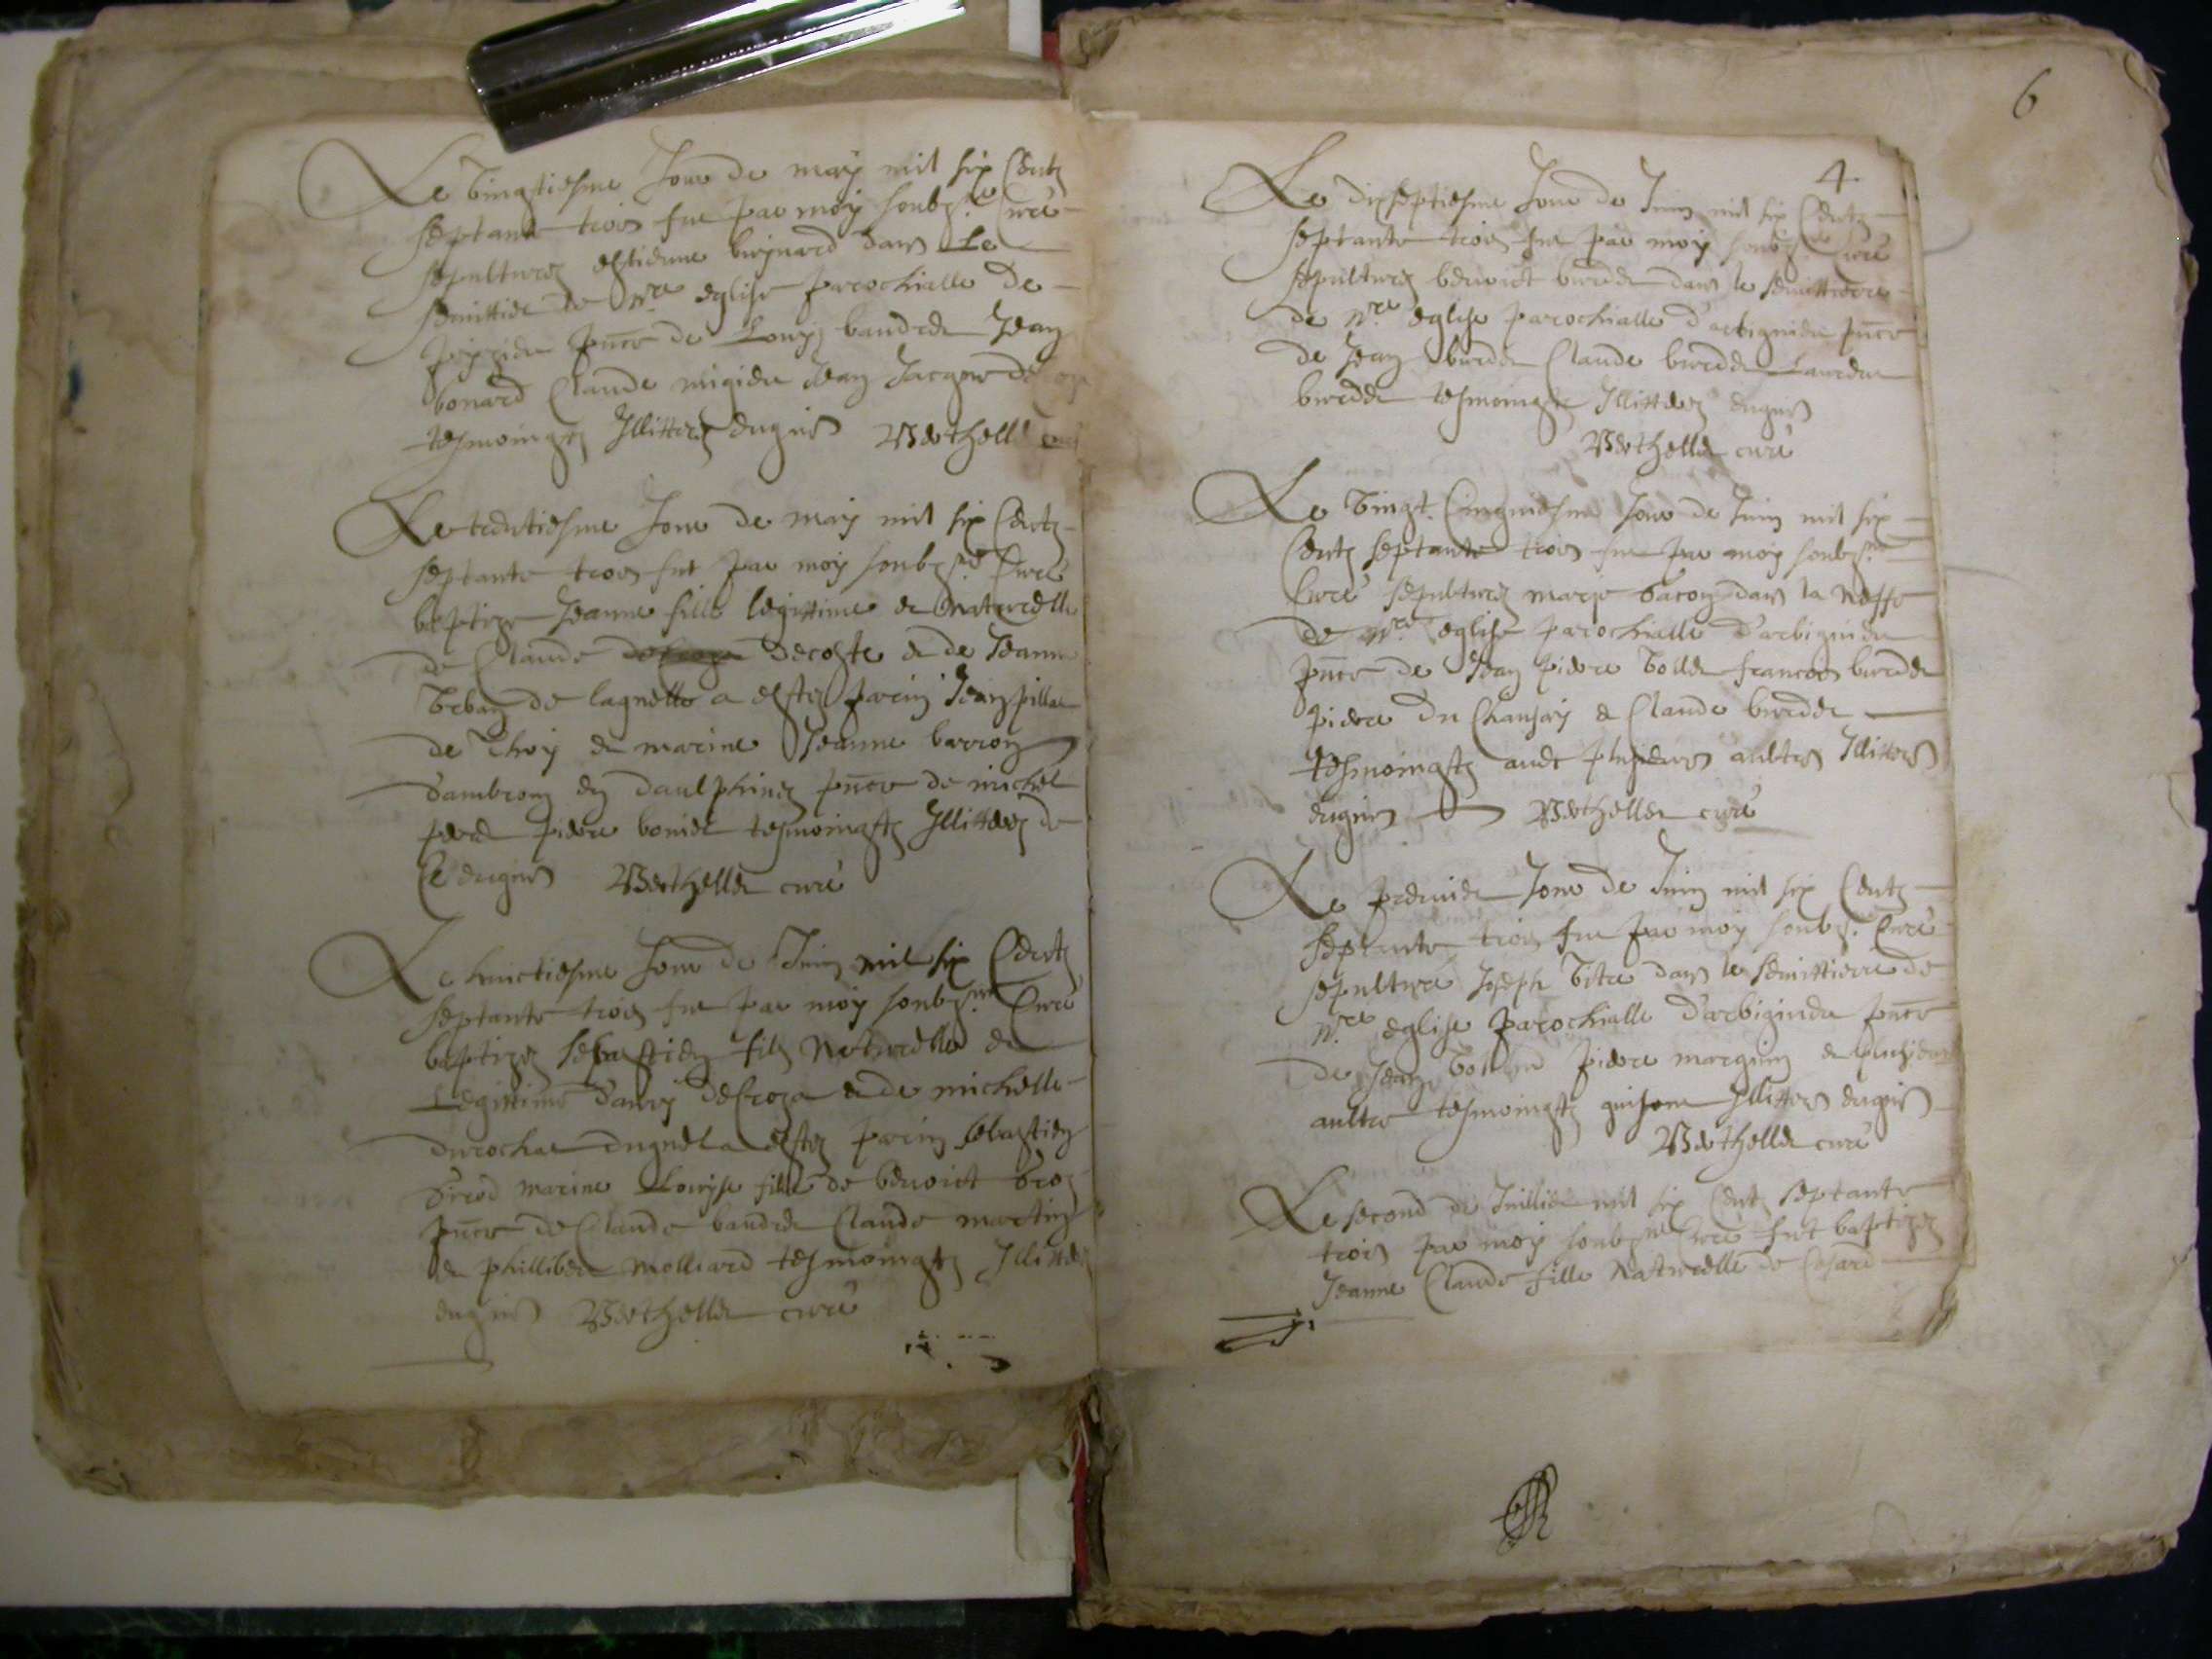 Le vingtiesme Jour de may mil six Centz
septante trois fut par moy soubz.né Curé
sepulturez estienne buynard dans Le
semittier de nre eglise parochialle de
pnce de Louys baudet Jean
bonard Claude migieu Jean Jacques
tesmoingtz Illitterez enquis Berthellet
Le trentiesme Jour de may mil six Centz
septante trois fut par moy soubz.né Curé
baptize Jeanne fille legittime et naturelle
de Claude Decoste et de Jeanne
de lagnette a estez parin Jean pillar
de Thoy et marine Jeanne barron
d'ambrony en daulphinez pnce de michel
piere boniet tesmoingtz Illitterez de
Ce enquis Berthellet curé
Le huictiesme Jour de Juin mil six Centz
septante trois fut par moy soubz.né Curé
baptizez sebastien filz Naturelle et
Legittime d'anry deCroza et de michelle
durochat duquel a estez parin sebastien
marine Louyse fille de benoict
pnce de Claude baudet Claude martin
et phillibert molliard tesmoingtz Illitterez
enquis Berthellet curé
6
4
Le dixseptiesme Jour de Juin mil six Centz
septante trois fut par moy soubz.né Curé
sepulturez benoict burdet dans le semittiere
de nre eglise parochialle d'arbignieu pnce
de Jean burdet Claude burdet Laurent
burdet tesmoingtz Illitterez enquis
Berthellet curé
Le vingt Cinquiesme Jour de Juin mil six
Centz septante trois fut par moy soubz.né
Curé sepulturez marie bacon dans la Neffe
de nre eglise parochialle d'arbignieu
pnce de Jean piere vollet francois burdet
piere du Chansay et Claude burdet
tesmoingtz avec plusieurs aultres Illitteres
enquis Berthellet curé
Le premier Jour de Juin mil six Centz
septante trois fut par moy soubz. Curé
sepulture Joseph vitte dans le semittiere de
nre eglise parochialle d'arbignieu pnce
de Jean piere marguin et plusieurs
aultre tesmoingtz qui sont Illitteres enquis
Berthellet curé
Le second de Juillet mil six Centz septante
trois par moy soubzné Curé fut baptizez
Jeanne Claude fille Naturelle de Cesard